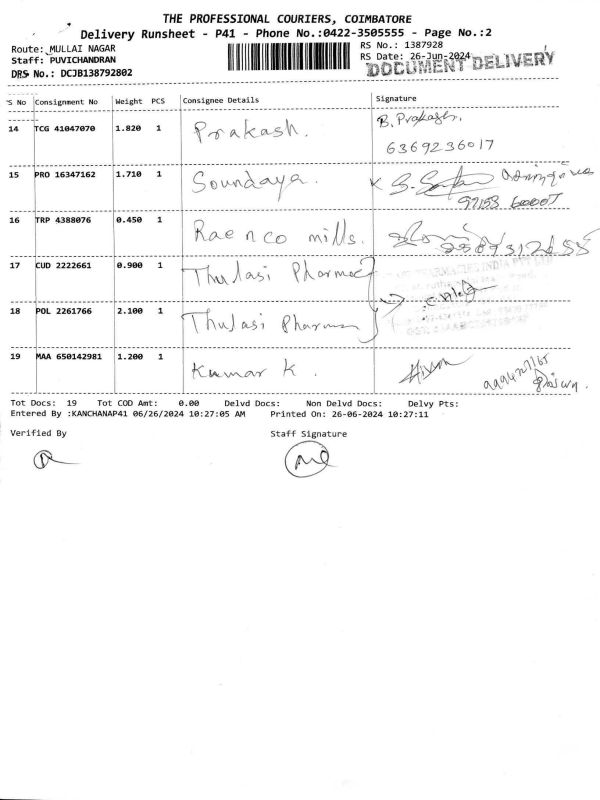 THE PROFESSIONAL COURIERS, COIMBATORE
Delivery Runsheet - P41 - Phone No.:0422-3505555 - Page No.:2
Route: MULLAI NAGAR RS No.: 1387928
Staff: PUVICHANDRAN RS Date: 26-Jun-2024
DRS No.: DCJB138792802 DOCUMENT DELIVERY
S No Consignment No Weight PCS Consignee Details Signature
14 TCG 41047070 1.820 1 Prakash. B. Prakash.
6369236017
15 PRO 16347162 1.710 1 Soundaya.
16 TRP 4388076 0.450 1 Rae n co mills.
17 CUD 2222661 0.900 1 Thulasi Pharmac
18 POL 2261766 2.100 1 Thulasi Pharmac
19 MAA 650142981 1.200 1 Kumar K.
Tot Docs: 19 Tot COD Amt: 0.00 Delvd Docs: Non Delvd Docs: Delvy Pts:
Entered By :KANCHANAP41 06/26/2024 10:27:05 AM Printed On: 26-06-2024 10:27:11
Verified By Staff Signature